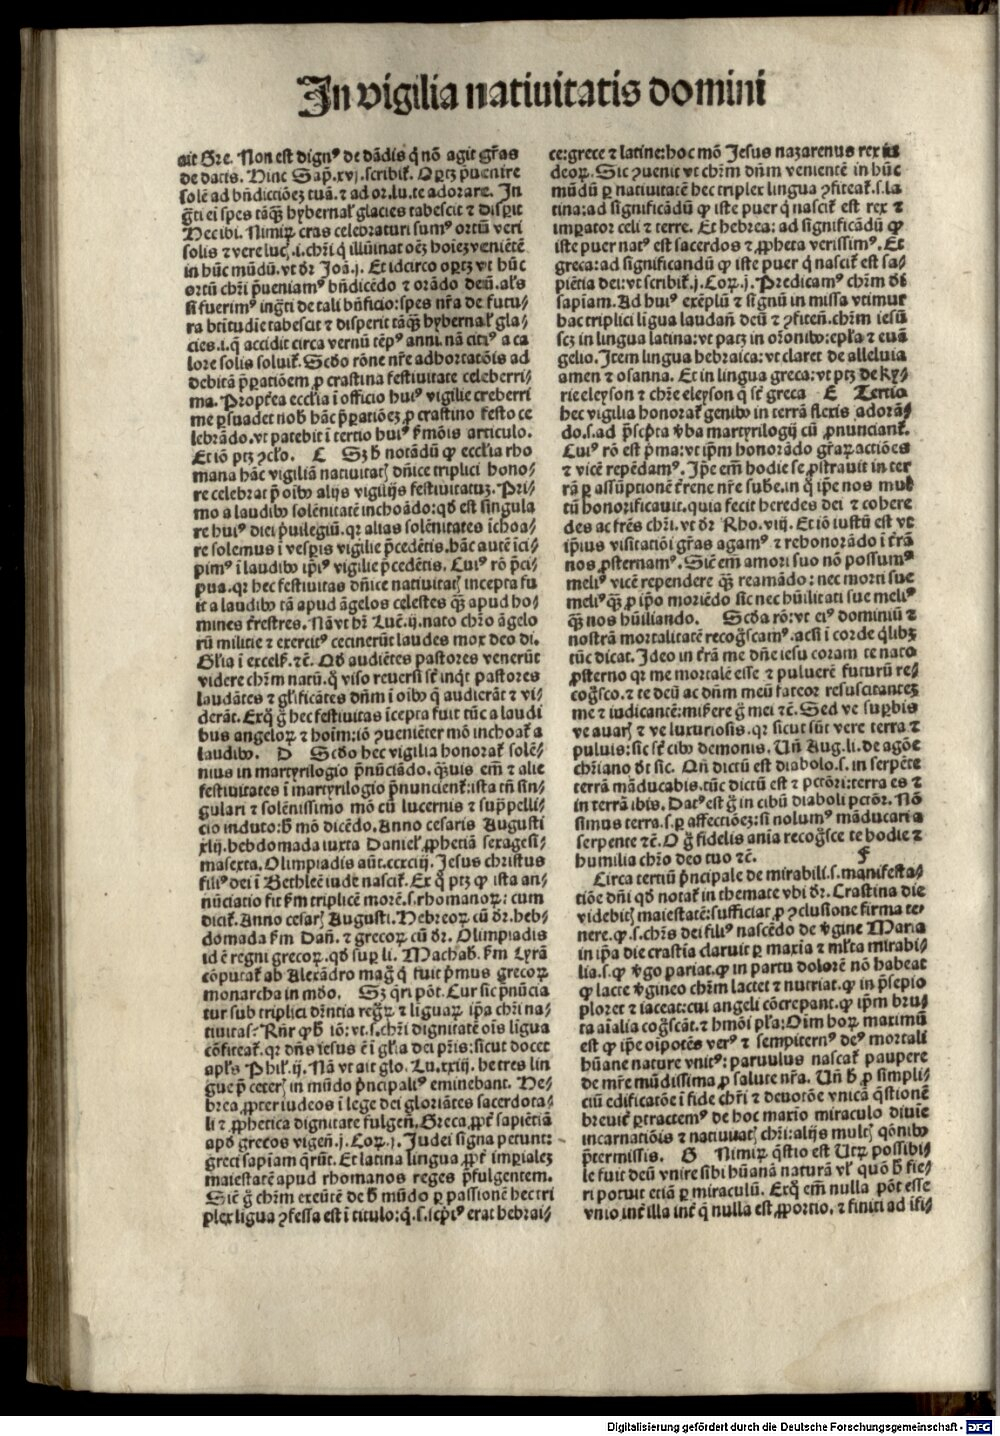 In vigilia natiuitatis domini
ait Gre. Non est dignꝰ de dādis q̄ nō agit gr̃as
de datis. Hinc Sap̄.xvj.scribit᷑. Oꝑtꝫ p̄uenire
solē ad bn̄dictiōeꝫ tuā. ⁊ ad or.lu.te adorare. In
gr̄ti ei spes tāqꝫ hybernal᷑ glacies tabescit ⁊ disperit
Hec ibi. Nimiꝝ cras celebraturi sumꝰ ortū veri
solis ⁊ vere lucꝭ.i.chr̄i.q̄ illūinat oēꝫ hoieꝫ veniētē
in hūc mūdū.vt dr̄ Joā.j. Et idcirco oꝑtꝫ vt hūc
ortū chr̄i p̄ueniamꝰ bn̄dicēdo ⁊ orādo deū.al's
si fuerimꝰ ingr̄ti de tali bn̄ficio:spes nr̄a de futu⸗
ra btītudīe tabescit ⁊ disperit tāqꝫ hybernal᷑ gla⸗
cies.i.q̄ accidit circa vernū tēpꝰ anni.nā citiꝰ a ca
lore solis soluit᷑. Scd̄o rōne nr̄e adhortatōis ad
debitā p̄ꝑatiōem ꝓ crastina festiuitate celeberri⸗
ma. Propt̄ea ecclīa ī officio huiꝰ vigilie creberri
me ꝑsuadet nob̄ hāc p̄ꝑatiōeꝫ ꝓ crastino festo ce
lebrādo.vt patebit ī tertio huiꝰ s̄mōis articulo.
Et iō ptꝫ ꝯclo. C Sꝫ h̄ notādū ꝙ ecclīa rho
mana hāc vigiliā natiuitatꝭ dn̄ice triplici hono⸗
re celebrat p̄ oībꝰ alijs vigilijs festiuitatuꝫ. Pri⸗
mo a laudibꝰ solēnitatē inchoādo:qd̄ est singula
re huiꝰ diei p̄uilegiū.qꝛ alias solēnitates ichoa⸗
re solemus ī vesꝑis vigilie p̄cedētis.hāc autē īci⸗
pimꝰ ī laudibꝰ ip̄iꝰ vigilie p̄cedētis. Cuiꝰ rō p̄ci⸗
pua.qꝛ hec festiuitas dn̄ice natiuitatꝭ incepta fu
it a laudibꝰ tā apud āgelos celestes qꝫ apud ho⸗
mines t̄restres. Nā vt hr̄ Luc̄.ij.nato chr̄o āgelo
rū militie ⁊ exercitꝰ cecinerūt laudes mox deo di.
Gl̄ia ī excelsꝭ.⁊c̄. Qd̄ audiētes pastores venerūt
videre chr̄m natū.q̄ viso reuersi sūt inq̄t pastores
laudātes ⁊ gl̄ificātes dn̄m ī oībꝰ q̄ audierāt ⁊ vi⸗
derāt. Exq̄ g̊ hec festiuitas īcepta fuit tūc a laudi
bus angeloꝝ ⁊ hoim:iō ꝯueniēter mō inchoat᷑ a
laudibꝰ. D Scd̄o hec vigilia honorat᷑ solē⸗
nius in martyrilogio p̄nūciādo.qꝫuis em̄ ⁊ alie
festiuitates ī martyrilogio p̄nuncient᷑:ista tn̄ sin⸗
gulari ⁊ solēnissimo mō cū lucernis ⁊ sup̄pelli⸗
cio induto:h̄ mō dicēdo.Anno cesaris Augusti
xlij.hebdomada iuxta Daniel᷑ ꝓphetiā sexagesi⸗
masexta. Olimpiadis aūt.ccxciij. Jesus christus
filiꝰ dei ī Bethleē iude nascit᷑. Ex q̄ ptꝫ ꝙ ista an⸗
nūciatio fit s̄m triplicē morē.s.rhomanoꝝ: cum
dicit᷑. Anno cesarꝭ Augusti. Hebreoꝝ cū dr̄. heb⸗
domada s̄m Dan̄. ⁊ grecoꝝ cū dr̄. Olimpiadis
id ē regni grecoꝝ.qd̄ suꝑ li. Machab̄. s̄m Lyrā
cōputat᷑ ab Alexādro mag̊ q̄ fuit p̄mus grecoꝝ
monarcha in mūdo. Sꝫ q̄ri pōt. Cur sic p̄nūcia
tur sub triplici dr̄ntia regꝝ ⁊ līguaꝝ ip̄a chr̄i na⸗
tiuitas? Rn̄r ꝙ h̄ iō: vt.s.chr̄i dignitatē oīs līgua
cōfiteat᷑.qꝛ dn̄s iesus ē ī gl̄ia dei pr̄is:sicut docet
apl's Phil᷑.ij. Nā vt ait glo. Lu.xxiij. he tres lin
gue p̄ ceterꝭ in mūdo p̄ncipaliꝰ eminebant. He⸗
brea ꝓpter iudeos ī lege dei gloriātes sacerdota⸗
li ⁊ ꝓphetica dignitate fulgen̄. Greca ꝓpt̄ sapiētiā
apd̄ grecos vigen̄.j.Coꝝ.j. Judei signa petunt:
greci sapīam q̄rūt. Et latina lingua ꝓpt̄ imꝑialeꝫ
maiestatē apud rhomanos reges p̄fulgentem.
Sic̄ g̊ chr̄m exeūtē de h̄ mūdo ꝑ passionē hec tri
plex līgua ꝯfessa est ī titulo:q̄.s.sc̄pꝰ erat hebrai⸗
ce:grece ⁊ latine:hoc mō Jesus nazarenus rex iu
deoꝝ. Sic ꝯuenit vt chr̄m dn̄m venientē in hūc
mūdū ꝑ natiuitatē hec triplex lingua ꝯfiteat᷑.s.la
tina:ad significādū ꝙ iste puer q̄ nascit᷑ est rex ⁊
imꝑator celi ⁊ terre. Et hebrea: ad significādū ꝙ
iste puer natꝰ est sacerdos ⁊ ꝓpheta verissimꝰ. Et
greca:ad significandū ꝙ iste puer q̄ nascit᷑ est sa⸗
piētia dei:vt scribit᷑.j.Coꝝ.j. Predicamꝰ chr̄m dei
sapīam. Ad huiꝰ exēplū ⁊ signū in missa vtimur
hac triplici līgua laudan̄ deū ⁊ ꝯfiten̄.chr̄m iesū
scꝫ in lingua latina:vt patꝫ in or̄onibꝰ:ep̄la ⁊ euā
gelio. Item lingua hebraica:vt claret de alleluia
amen ⁊ osanna. Et in lingua greca:vt ptꝫ de ky⸗
rie eleyson ⁊ chr̄e eleyson q̄ st̄ greca E Tertio
hec vigilia honorat᷑ genibꝰ in terrā flexis adorā⸗
do.s.ad p̄sc̄pta v̄ba martyrilogij cū ꝓnunciant᷑.
Cuiꝰ rō est p̄ma:vt ip̄m honorādo gr̄aꝝ actiōes
⁊ vicē repēdamꝰ. Ip̄e em̄ hodie se ꝓstrauit in ter
rā ꝑ assūptionē t̄rene nr̄e subē.in q̄ ip̄e nos mul
tū honorificauit.quia fecit heredes dei ⁊ cohere
des ac fr̄es chr̄i.vt dr̄ Rho.viij. Et iō iustū est vt
ip̄ius visitatiōi gr̄as agamꝰ ⁊ rehonorādo ī t̄rā
nos ꝓsternamꝰ. Sic̄ em̄ amori suo nō possumꝰ
meliꝰ vicē rependere qꝫ reamādo: nec morti sue
meliꝰ qꝫ ꝓ ip̄o moriēdo sic nec hūilitati sue meliꝰ
qꝫ nos hūiliando. Scd̄a rō: vt eiꝰ dominiū ⁊
nostrā mortalitatē recogn̄scamꝰ.ac si ī corde q̄libꝫ
tūc dicat. Ideo in t̄rā me dn̄e iesu coram te nato
ꝓsterno qꝛ me mortalē esse ⁊ puluerē futurū re⸗
cogn̄sco.⁊ te deū ac dn̄m meū fateor resuscitanteꝫ
me ⁊ iudicantē:mis̄ere g̊ mei ⁊c̄. Sed ve suꝑbis
ve auarꝭ ⁊ ve luxuriosis.qꝛ sicut sūt vere terra ⁊
puluis:sic st̄ cibꝰ demonis. Vn̄ Aug.li.de agōe
chr̄iano dt̄ sic. Qn̄ dictū est diabolo.s.in serpēte
terrā māducabis.tūc dictū est ⁊ pctōri:terra es ⁊
in terrā ibis. Datꝰ est g̊ in cibū diaboli pctōr. Nō
simus terra.s.ꝑ affectiōeꝫ:si nolumꝰ māducari a
serpente ⁊c̄. O g̊ fidelis anīa recogn̄sce te hodie ⁊
humilia chr̄o deo tuo ⁊c̄. F
Circa tertiū p̄ncipale de mirabili.s.manifesta⸗
tiōe dn̄i qd̄ notat᷑ in themate vbi dr̄. Crastina die
videbitꝭ maiestatē:sufficiat ꝓ ꝯclusione firma te⸗
nere.ꝙ.s.chr̄s dei filiꝰ nascēdo de v̄gine Maria
in ip̄a die crastīa claruit ꝑ maxīa ⁊ ml̄ta mirabi⸗
lia.s.ꝙ v̄go pariat.ꝙ in partu dolorē nō habeat
ꝙ lacte v̄gineo chr̄m lactet ⁊ nutriat.ꝙ in p̄sepio
ploret ⁊ iaceat:cui angeli cōcrepant.ꝙ ip̄m bru⸗
ta aīalia cogn̄scāt.⁊ hmōi pl̄a:Oīm hoꝝ maximū
est ꝙ ip̄e oīpotēs verꝰ ⁊ sempiternꝰ deꝰ mortali
hūane nature vnitꝰ: paruulus nascat᷑ paupere
de mr̄e mūdissima ꝓ salute nr̄a. Vn̄ h̄ ꝓ simpli⸗
ciū edificatōe ī fide chr̄i ⁊ deuotōe vnicā q̄stionē
breuit᷑ ꝑtractemꝰ de hoc maxīo miraculo diuīe
incarnatiōis ⁊ natiuitatꝭ chr̄i:alijs multꝭ qōnibꝰ
p̄termissis. G Nimiꝝ q̄stio est Utꝝ possibi⸗
le fuit deū vnire sibi hūanā naturā vl' quō h̄ fie⸗
ri potuit etiā ꝑ miraculū. Exq̄ em̄ nulla pōt esse
vnio int̄ illa int̄ q̄ nulla est ꝓportio. ⁊ finiti ad ifi⸗
Digitalisierung gefördert durch die Deutsche Forschungsgemeinschaft - DFG